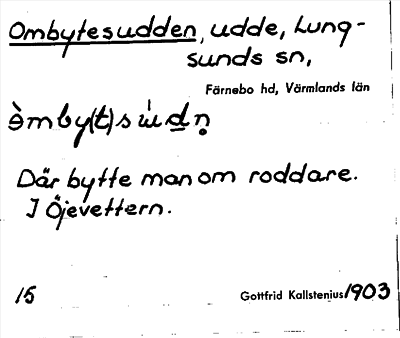 Ombytesudden, udde, Lung-
sunds sn,
Färnebo hd, Värmlands län
Där bytte man om roddare.
I Öjevettern.
15
Gottfrid Kallstenius 1903